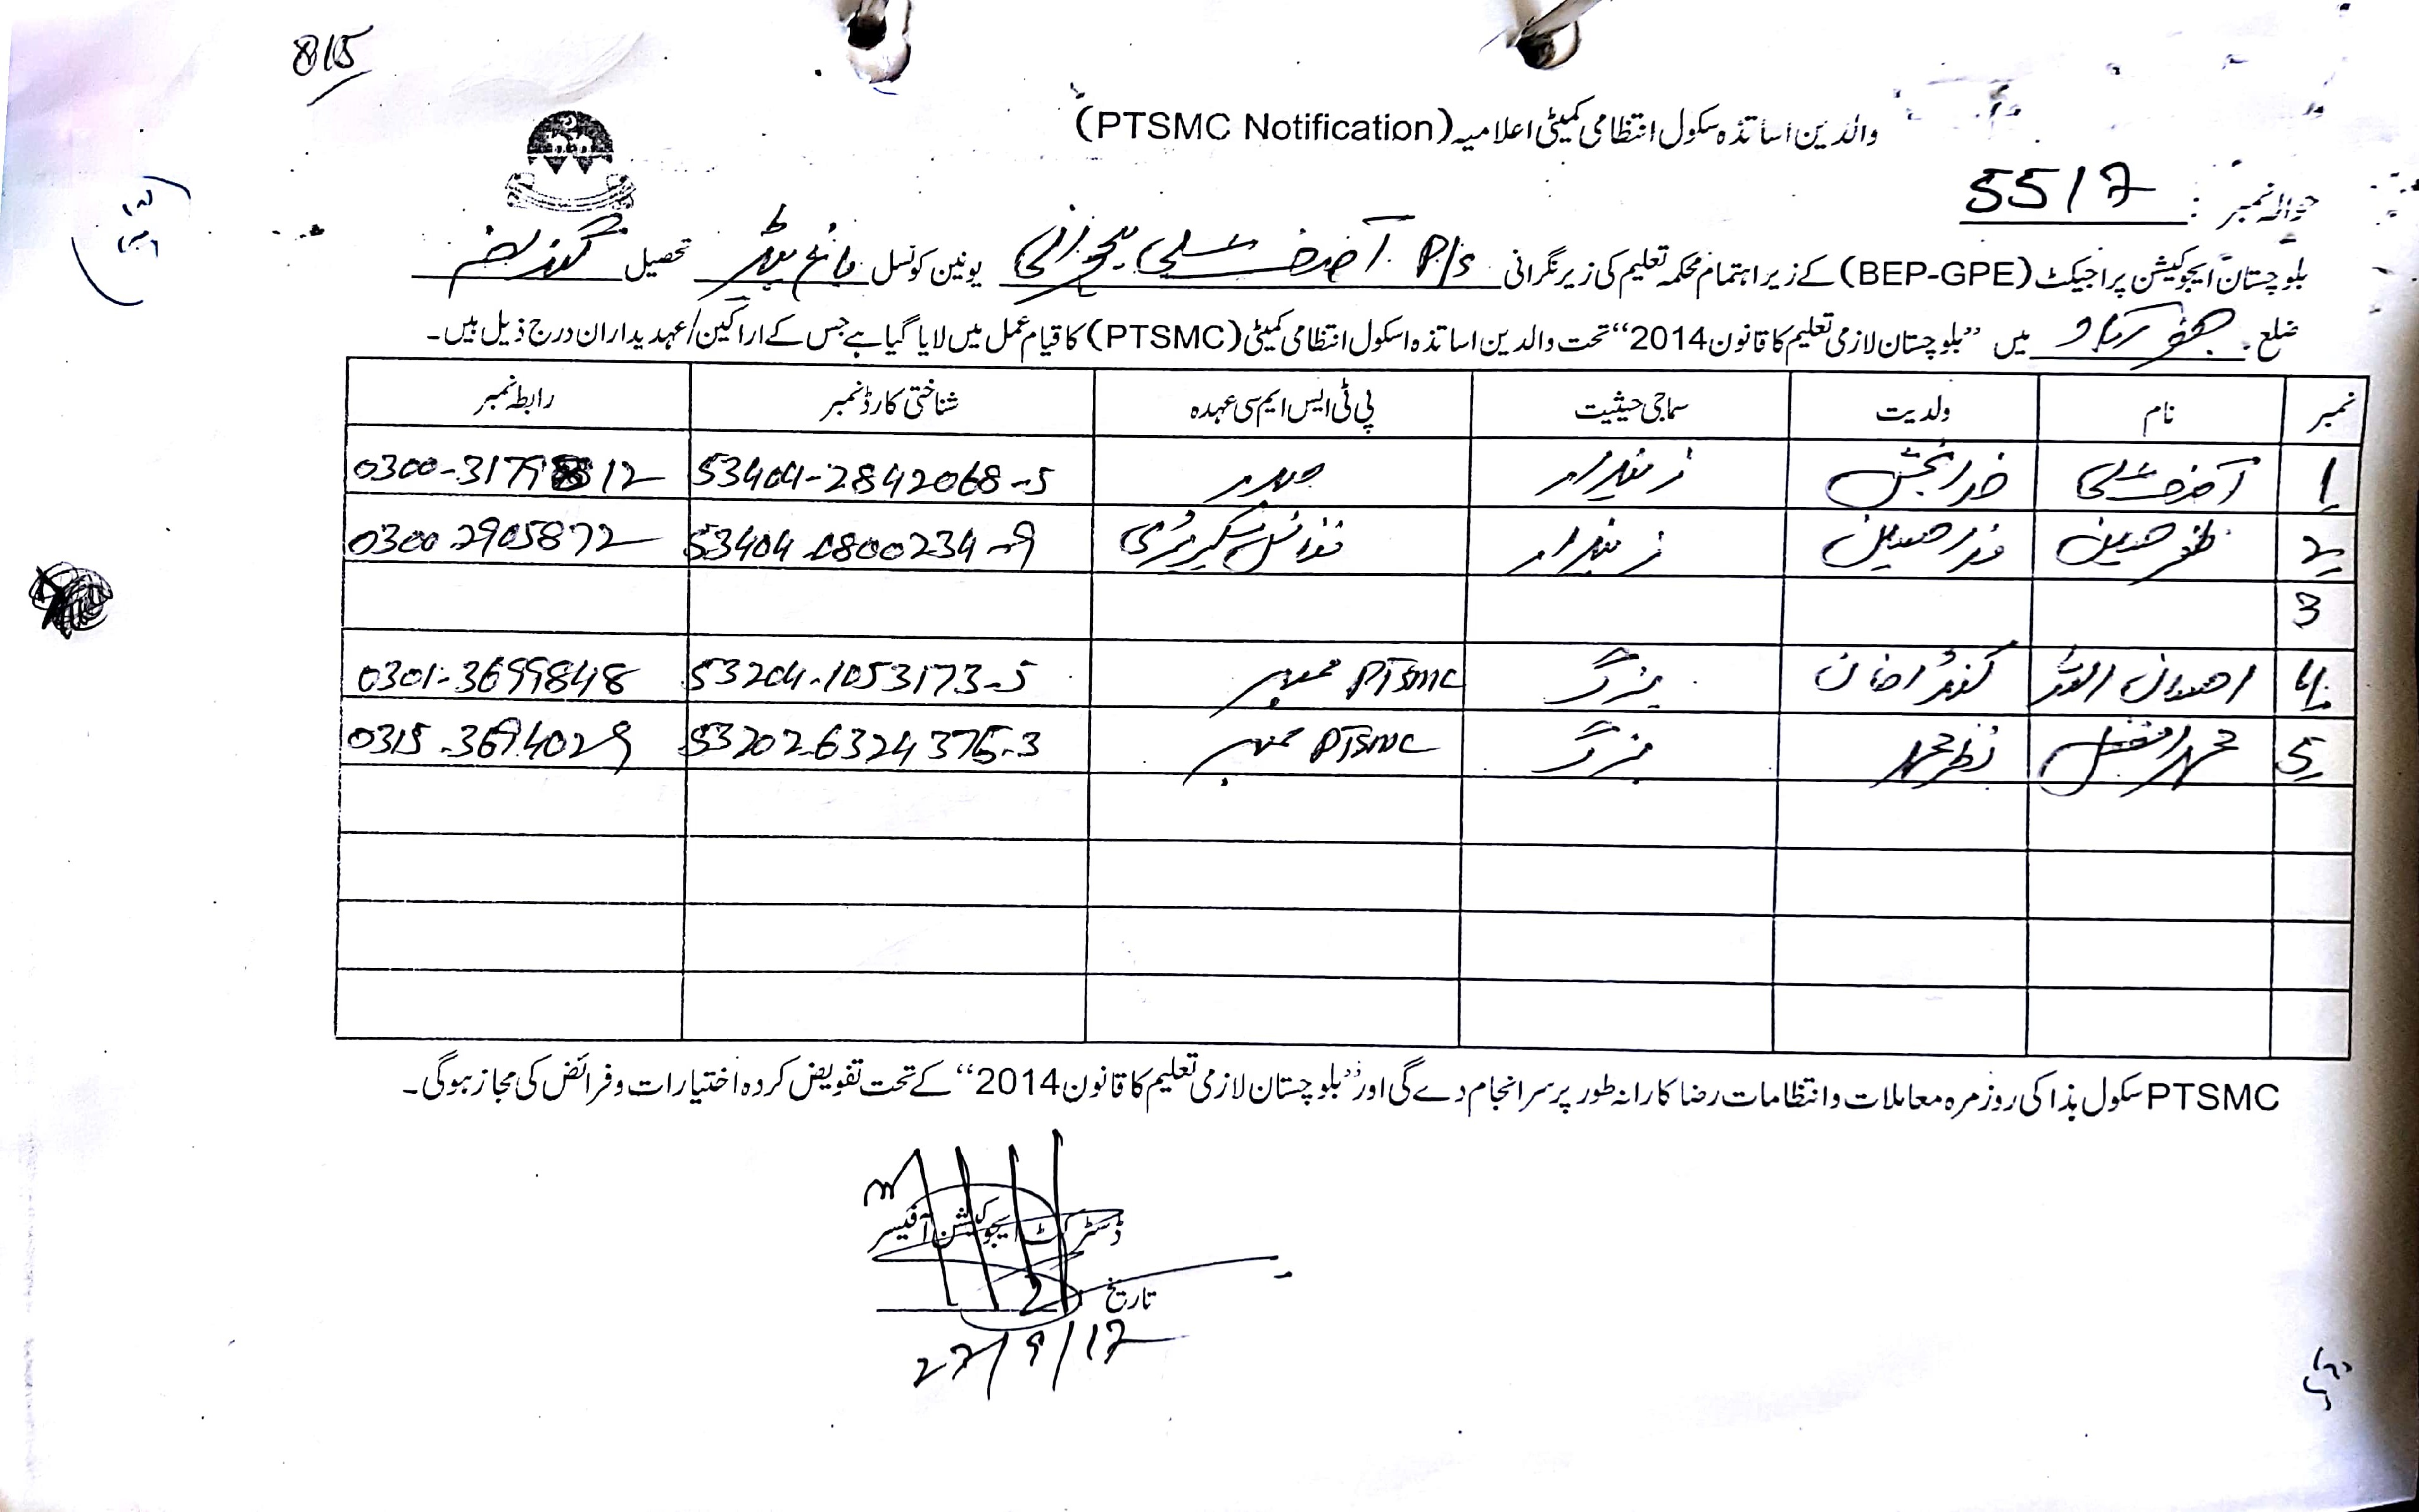 815
والدین اساتذہ سکول انتظامی کمیٹی اعلامیہ (PTSMC Notification)
حوالہ نمبر: 5517
بلوچستان ایجوکیشن پراجیکٹ (BEP-GPE) کے زیر اہتمام محکمہ تعلیم کی زیر نگرانی P/s یونین کونسل تحصیل
ضلع میں ”بلوچستان لازمی تعلیم کا قانون 2014“ تحت والدین اساتذہ اسکول انتظامی کمیٹی (PTSMC) کا قیام عمل میں لایا گیا ہے جس کے اراکین/عہدیداران درج ذیل ہیں۔
نمبر نام ولدیت سماجی حیثیت پی ٹی ایس ایم سی عہدہ شناختی کارڈ نمبر رابطہ نمبر
1 خدا بخش زمیندار صدر 53404-2842068-5
2 ظفر حسین زمیندار فنانس سیکریٹری 53404-0800234-9 0300-2905872
3
4 احسان اللہ بزرگ PTSMC ممبر 53204-1053173-5 0301-3699848
5 محمد افضل نظر محمد بزرگ PTSMC ممبر 53202-6324376-3 0315-3694029
PTSMC سکول ہذا کی روز مرہ معاملات و انتظامات رضا کارانہ طور پر سرانجام دے گی اور ”بلوچستان لازمی تعلیم کا قانون 2014“ کے تحت تفویض کردہ اختیارات و فرائض کی مجاز ہوگی۔
ڈسٹرکٹ ایجوکیشن آفیسر
تاریخ
27/9/17